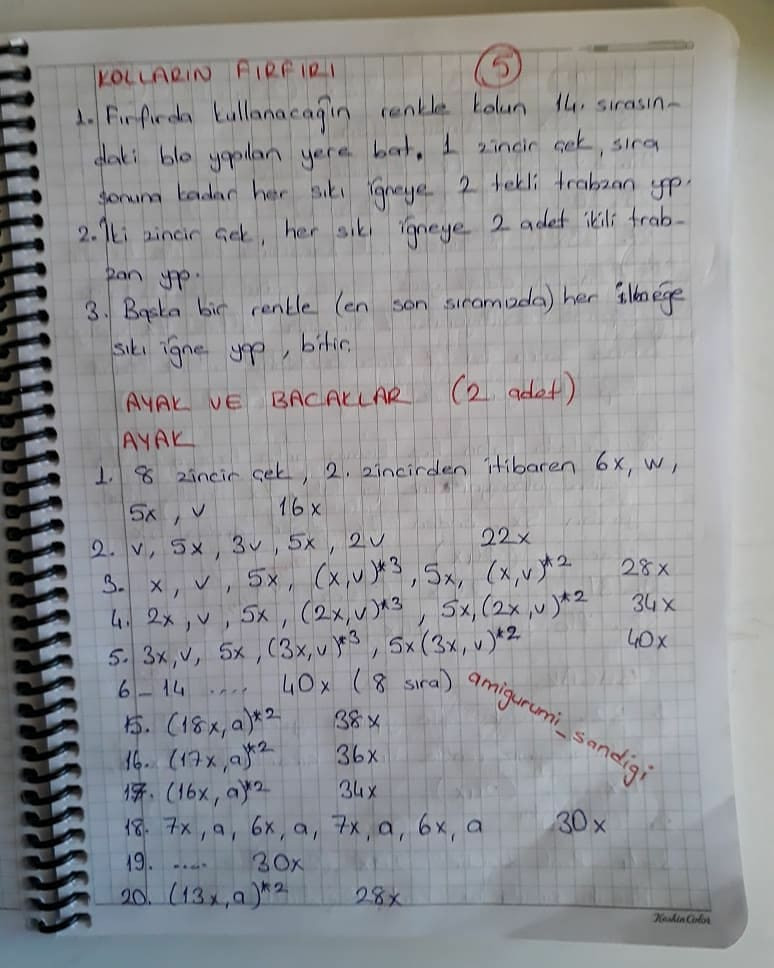 KOLLARIN FIRFIRI 5
1. Fırfırda kullanacağın renkle kolun 14. sırasın-
daki blo yapılan yere bat. 1 zincir çek, sıra
sonuna kadar her sıkı iğneye 2 tekli trabzan yap.
2. İki zincir çek, her sıkı iğneye 2 adet ikili trab-
zan yap.
3. Başka bir renkle (en son sıramızda) her ilmeğe
sıkı iğne yap, bitir.
AYAK VE BACAKLAR (2 adet)
AYAK
1. 8 zincir çek, 2. zincirden itibaren 6x, w,
5x, v 16x
2. v, 5x, 3v, 5x, 2v 22x
3. x, v, 5x, (x,v)*3, 5x, (x,v)*2 28x
4. 2x, v, 5x, (2x,v)*3, 5x, (2x,v)*2 34x
5. 3x,v, 5x, (3x,v)*3, 5x(3x,v)*2 40x
6-14 .... 40x (8 sıra)
amigurumi_sandigi
15. (18x, a)*2 38x
16. (17x, a)*2 36x
17. (16x, a)*2 34x
18. 7x, a, 6x, a, 7x, a, 6x, a 30x
19. .... 30x
20. (13x, a)*2 28x
KeskinColor